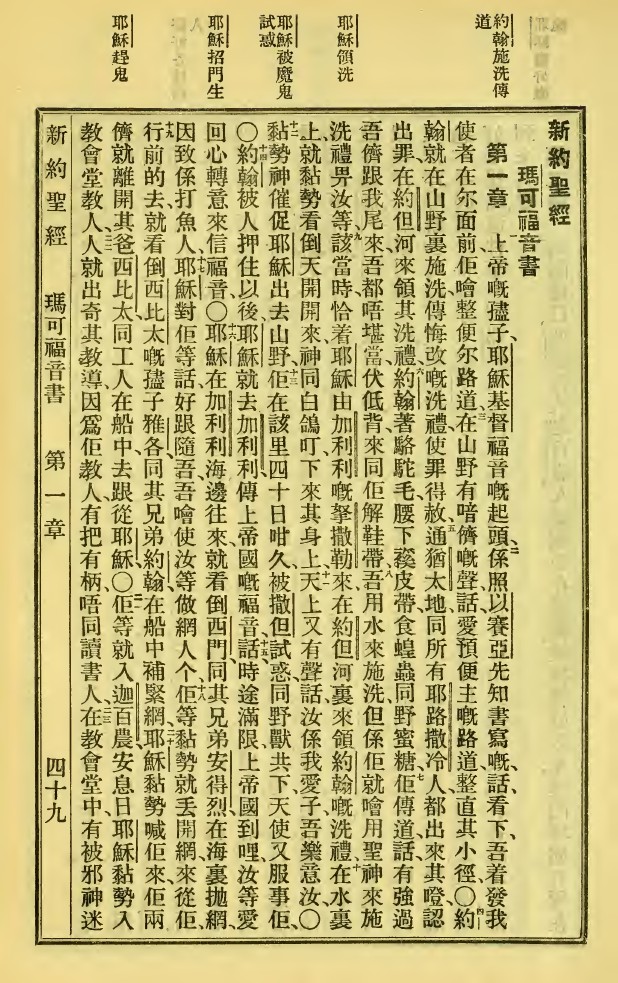 約翰施洗傳
道
耶穌領洗
耶穌被魔鬼
試惑
耶穌招門生
耶穌趕鬼
新約聖經
瑪可福音書
第一章 一上帝嘅孻子、耶穌基督福音嘅起頭、二係照以賽亞先知書寫嘅、話、看下、吾着發我
使者在尔面前佢噲整便尔路道、三在山野有喑儕嘅聲話、愛預便主嘅路道、整直其小徑、〇四約
翰就在山野裏施洗傳悔改嘅洗禮使罪得赦、五通猶太地同所有耶路撒冷人都出來其噔認
出罪在約但河來領其洗禮、六約翰著駱駝毛腰下䙡皮帶食蝗蟲同野蜜糖、七佢傳道、話有強過
吾儕跟我尾來、吾都唔堪當伏低背來同佢解鞋帶、八吾用水來施洗、但係佢就噲用聖神來施
洗禮畀汝等、九該當時恰着耶穌由加利利嘅拏撒勒來在約但河裏來領約翰嘅洗禮、十在水裏
上就黏勢看倒天開開來、神同白鴿叮下來其身上、十一天上又有聲話、汝係我愛子、吾樂意汝、〇
十二黏勢神催促耶穌出去山野、十三佢在該里四十日咁久、被撒但試惑、同野獸共下、天使又服事佢、
〇十四約翰被人押住以後、耶穌就去加利利傳上帝國嘅福音、十五話、時途滿限、上帝國到哩、汝等愛
回心轉意來信福音、〇十六耶穌在加利利海邊往來、就看倒西門同其兄弟安得烈在海裏拋網、
因致係打魚人、十七耶穌對佢等話、好跟隨吾、吾噲使汝等做網人个、十八佢等黏勢就丢開網來從佢、
十九行前的去、就看倒西比太嘅孻子雅各、同其兄弟約翰在船中補緊網、二十耶穌黏勢喊佢來、佢兩
儕就離開其爸西比太同工人在船中、去跟從耶穌、〇二一佢等就入迦百農、安息日耶穌黏勢入
教會堂教人、二二人就出奇其教導、因爲佢教人、有把有柄、唔同讀書人、二三在教會堂中、有被邪神迷
新約聖經 瑪可福音書 第一章 四十九